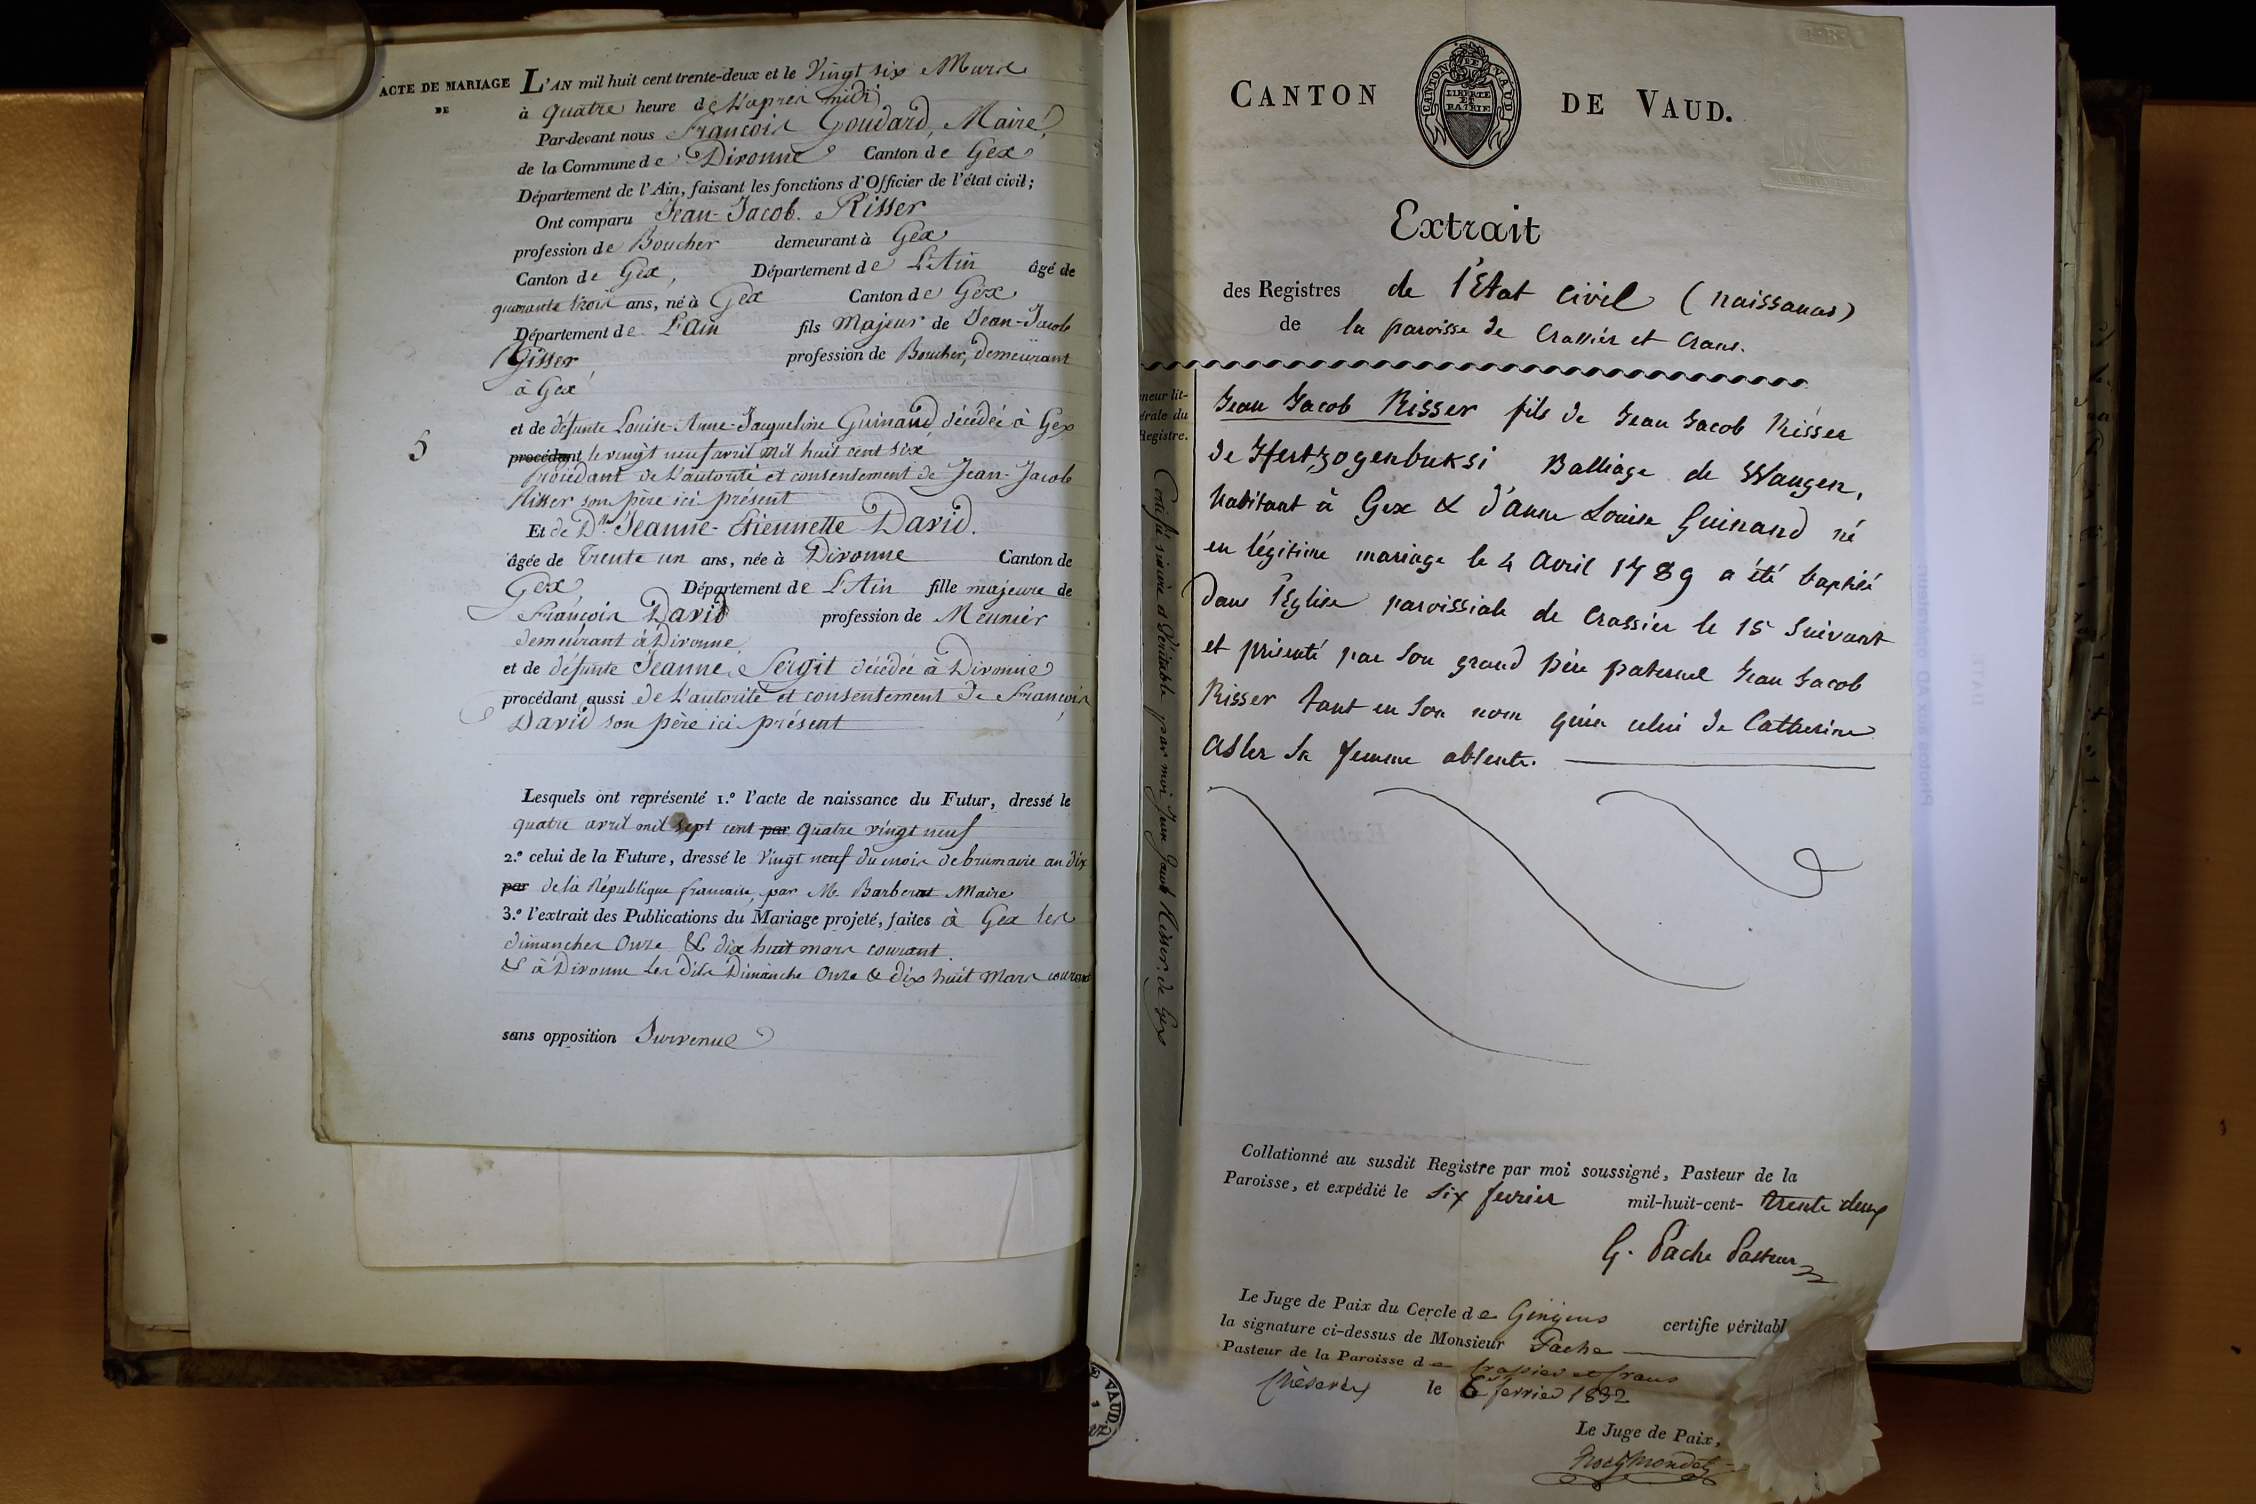 ACTE DE MARIAGE
DE
L'AN mil huit cent trente-deux et le vingt six Mars
à quatre heure de l'après midi
Par-devant nous François Goudard, Maire
de la Commune de Divonne Canton de Gex
Département de l'Ain, faisant les fonctions d'Officier de l'état civil;
Ont comparu Jean-Jacob Risser
profession de Boucher demeurant à Gex
Canton de Gex, Département de L'Ain âgé de
quarante trois ans, né à Gex Canton de Gex
Département de L'Ain fils Majeur de Jean-Jacob
Risser profession de Boucher, demeurant
à Gex
5
et de défunte Louise-Anne-Jacqueline Guinand décédée à Gex
procédant le vingt neuf avril mil huit cent six
Procédant de L'autorité et consentement de Jean-Jacob
Risser son père ici présent
Et de Dlle Jeanne-Etiennette David.
âgée de trente un ans, née à Divonne Canton de
Gex Département de L'Ain fille majeure de
François David profession de Meunier
demeurant à Divonne
et de défunte Jeanne Sergit décédée à Divonne
procédant aussi de L'autorité et consentement de François
David son père ici présent
Lesquels ont représenté 1.º l'acte de naissance du Futur, dressé le
quatre avril mil sept cent par quatre vingt neuf
2.º celui de la Future, dressé le vingt neuf du mois de brumaire an dix
par de la République francaise, par Mr Barberat Maire
3.º l'extrait des Publications du Mariage projeté, faites à Gex les
dimanches onze & dix huit mars courant
& à Divonne les dits Dimanche onze & dix huit Mars courant
sans opposition Survenue
CANTON DE VAUD.
CANTON DE VAUD
LIBERTÉ
ET
PATRIE
Extrait
des Registres de l'Etat civil (naissances)
de la paroisse de Crassier et Crans.
neur lit-
érale du
Registre.
Certifié sincère et véritable par moi Jean Jacob Risser, de Gex
Jean Jacob Risser fils de Jean Jacob Risser
de Hertzogenbuksi Balliage de Wangen,
habitant à Gex & d'anne Louise Guinand né
en légitime mariage le 4 Avril 1789 a été baptisé
dans l'Eglise paroissiale de Crassier le 15 suivant
et présenté par son grand père paternel Jean Jacob
Risser tant en son nom qu'en celui de Catherine
Asler sa femme absente.
Collationné au susdit Registre par moi soussigné, Pasteur de la
Paroisse, et expédié le six fevrier mil-huit-cent- trente deux
G. Pache Pasteur
Le Juge de Paix du Cercle de Gingins certifie véritabl
la signature ci-dessus de Monsieur Pache
Pasteur de la Paroisse de Crassier et Crans
Chéserex le 6 fevrier 1832
Le Juge de Paix,